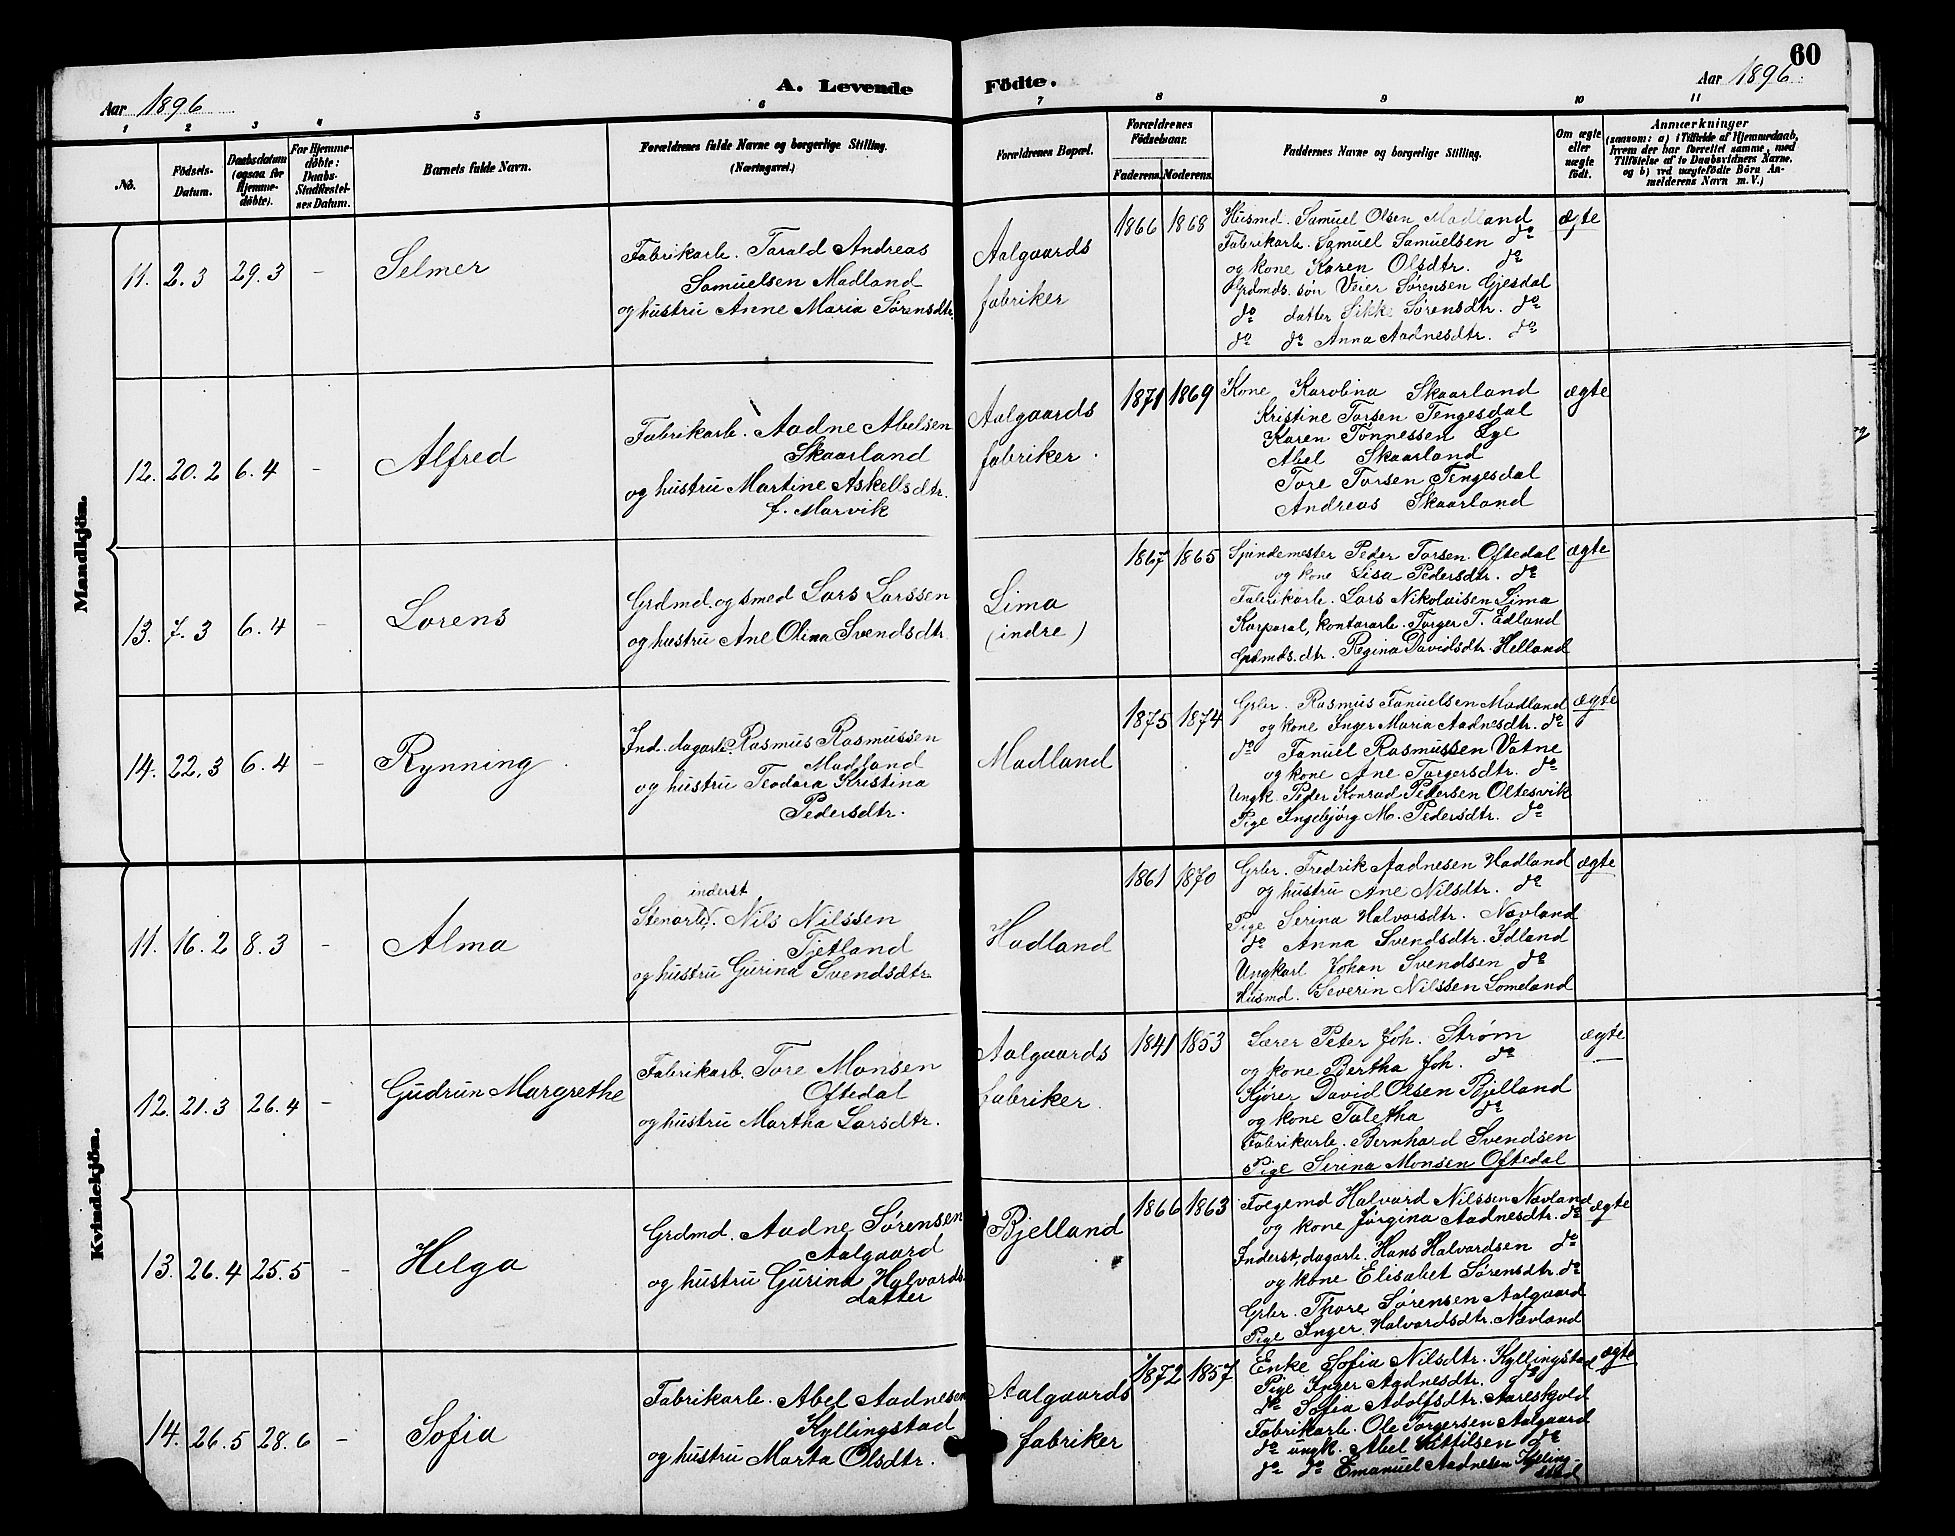 60
Aar 1896
A. Levende Födte.
Aar 1896
1 2 3 4 5 6 7 8 9 10 11
No.
Födsels-Datum.
Daabsdatum (ogsaa for Hjemmedöbte).
For Hjemmedöbte: Daabs-Stadfæstelses Datum.
Barnets fulde Navn.
Forældrenes fulde Navne og borgerlige Stilling.
(Næringsvei.)
Forældrenes Bopæl.
Forældrenes Födselsaar.
Faderens. Moderens.
Faddernes Navne og borgerlige Stilling.
Om ægte eller uægte født.
Anmærkninger
(saasom: a) i Tilfælde af Hjemmedaab,
hvem der har forrettet samme, med
Tilføielse af to Daabsvidners Navne.
og b) ved uægtefødte Börn An-
melderens Navn m.V.)
Mandkjön.
11. 2.3 29.3 - Selmer
Fabrikarb. Tarald Andreas
Samuelsen Madland
og hustru Anne Maria Sørensdtr.
Aalgaards
fabriker
1866 1868
Husmd. Samuel Olsen Madland
Fabrikarb. Samuel Samuelsen do
og kone Karen Olsdtr. do
Grdmds. søn Veier Sørensen Gjesdal
do datter Sikke Sørensdtr. do
do do Anna Aadnesdtr. do
ægte
12. 20.2 6.4 - Alfred
Fabrikarb. Aadne Abelsen
Skaarland
og hustru Martine Askellsdtr.
f. Marvik
Aalgaards
fabriker.
1871 1869
Kone Karolina Skaarland
Kristine Torsen Tengesdal
Karen Tønnessen Lye
Abel Skaarland
Tore Torsen Tengesdal
Andreas Skaarland
ægte
13. 7.3 6.4 - Lorens
Grdmd. og smed Lars Larssen
og hustru Ane Olina Svendsdtr.
Lima
(indre)
1867 1865
Spindemester Peder Torsen Oftedal
og kone Lisa Pedersdtr. do
Fabrikarb. Lars Nikolaisen Lima
Korporal, kontorarb. Torger T. Edland
Grdmds. dtr. Regina Davidsdtr. Helland
ægte
14. 22.3 6.4 - Rynning
Ind. dagarb. Rasmus Rasmussen
Madland
og hustru Teodora Kristina
Pedersdtr.
Madland
1875 1874
Grbr. Rasmus Fanuelsen Madland
og kone Inger Maria Aadnesdtr. do
do Fanuel Rasmussen Vatne
og kone Ane Torgersdtr. do
Ungk. Peder Konrad Pedersen Oltesvik
Pige Ingebjørg M. Pedersdtr. do
ægte
Kvindekjön.
11. 16.2 8.3 - Alma
inderst
Stenarb. Nils Nilssen
Tjetland
og hustru Gurina Svendsdtr.
Hadland
1861 1870
Grbr. Fredrik Aadnesen Hadland
og hustru Ane Nilsdtr. do
Pige Serina Halvorsdtr. Nævland
do Anna Svendsdtr. Idland
Ungkarl Johan Svendsen do
Husmd. Severin Nilssen Lomeland
ægte
12. 21.3 26.4 - Gudrun Margrethe
Fabrikarb. Tore Monsen
Oftedal
og hustru Martha Larsdtr.
Aalgaards
fabriker.
1841 1853
Lærer Peter Joh. Strøm
og kone Bertha Joh. do
Kjører David Olsen Bjelland
og kone Taletha do
Fabrikarb. Bernhard Svendsen
Pige Serina Monsen Oftedal
ægte
13. 26.4 25.5 - Helga
Grdmd. Aadne Sørensen
Aalgaard
og hustru Gurina Halvards
datter
Bjelland
1866 1863
Folgemd Halvard Nilssen Nævland
og kone Jørgina Aadnesdtr. do
Inderst, dagarb. Hans Halvardsen do
og kone Elisabet Sørensdtr. do
Grbr. Thore Sørensen Aalgaard
Pige Inger Halvardsdtr. Nævland
ægte
14. 26.5 28.6 - Sofia
Fabrikarb. Abel Aadnesen
Kyllingstad
og hustru Marta Olsdtr.
Aalgaards
fabriker
1872 1857
Enke Sofia Nilsdtr. Kyllingstad
Pige Inger Aadnesdtr. do
do Sofia Adolfsdtr. Aareskjold
Fabrikarb. Ole Torgersen Aalgaard
do ungk. Abel Kittilsen do
do do Emanuel Aadnesen Kylling-
stad
ægte